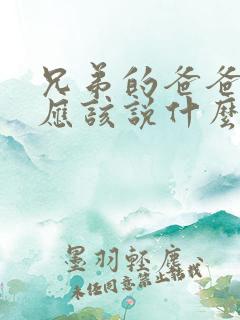 兄弟的爸爸
應該說什麼
墨羽輕塵、
未任同意禁止轉載